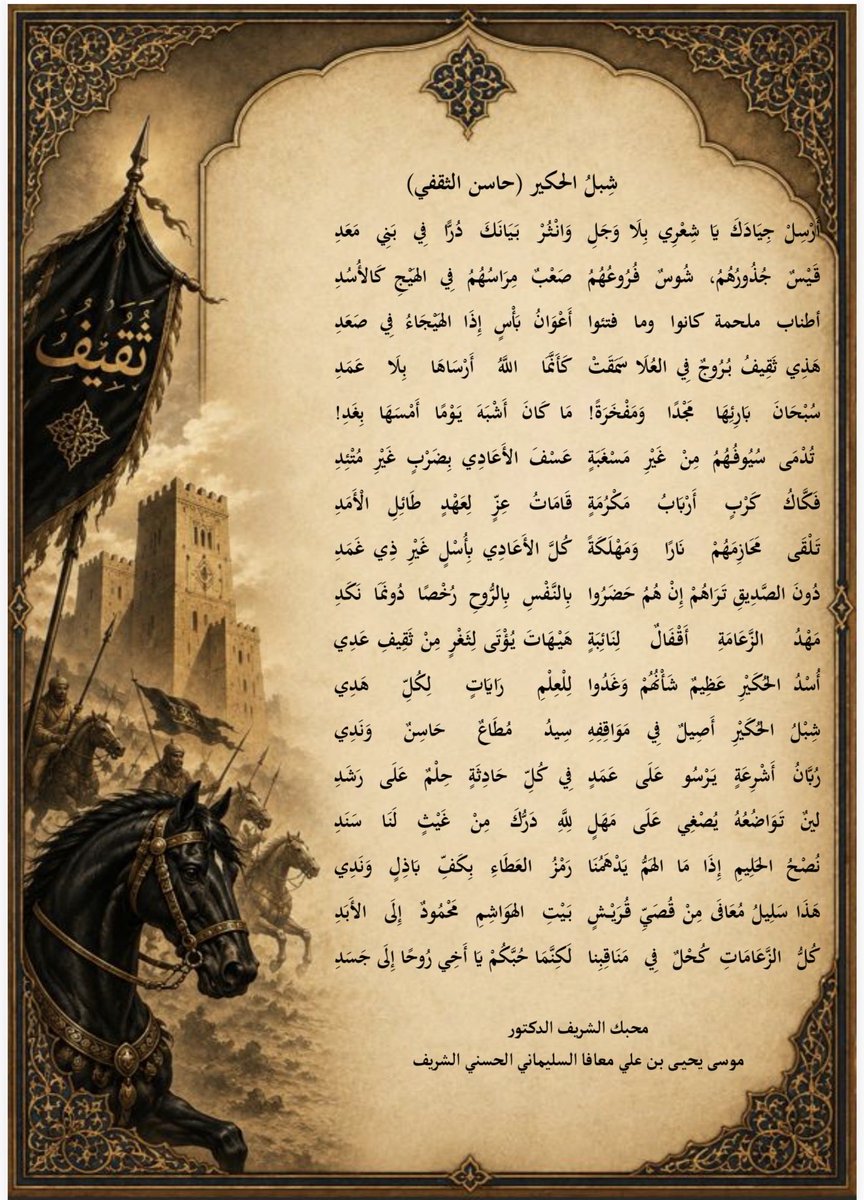 ثَقِيفُ
شِبلُ الحكير (حاسن الثقفي)
أَرْسِلْ جِيَادَكَ يَا شِعْرِي بِلَا وَجَلِ وَانْثُرْ بَيَانَكَ دُرًّا فِي بَنِي مَعَدِ
قَيْسٌ جُذُورُهُمُ، شُوسٌ فُرُوعُهُمُ صَعْبٌ مِرَاسُهُمُ فِي الهَيْجِ كَالأُسُدِ
أطناب ملحمة كانوا وما فتئوا أَعْوَانُ بَأْسٍ إِذَا الهَيْجَاءُ فِي صَعَدِ
هَذِي ثَقِيفُ بُرُوجٌ فِي العُلَا سَمَقَتْ كَأَنَّمَا اللَّهُ أَرْسَاهَا بِلَا عَمَدِ
سُبْحَانَ بَارِئِهَا مَجْدًا وَمَفْخَرَةً! مَا كَانَ أَشْبَهَ يَوْمًا أَمْسَهَا بِغَدِ!
تُدْمَى سُيُوفُهُمُ مِنْ غَيْرِ مَسْغَبَةٍ عَسْفَ الأَعَادِي بِضَرْبٍ غَيْرِ مُتْئِدِ
فَكَّاكُ كَرْبٍ أَرْبَابُ مَكْرُمَةٍ قَامَاتُ عِزٍّ لِعَهْدٍ طَائِلِ الْأَمَدِ
تَلْقَى مَحَازِمَهُمْ نَارًا وَمَهْلَكَةً كُلَّ الأَعَادِي بِأُسْلٍ غَيْرِ ذِي غَمَدِ
دُونَ الصَّدِيقِ تَرَاهُمْ إِنْ هُمُ حَضَرُوا بِالنَّفْسِ بِالرُّوحِ رُخْصًا دُونَمَا نَكَدِ
مَهْدُ الزَّعَامَةِ أَقْفَالٌ لِنَائِبَةٍ هَيْهَاتَ يُؤْتَى لِثَغْرٍ مِنْ ثَقِيفِ عَدِي
أُسْدُ الحُكَيْرِ عَظِيمٌ شَأْنُهُمْ وَغَدُوا لِلْعِلْمِ رَايَاتٍ لِكُلِّ هَدِي
شِبْلُ الحُكَيْرِ أَصِيلٌ فِي مَوَاقِفِهِ سِيدُ مُطَاعٌ حَاسِنٌ وَنَدِي
رُبَّانُ أَشْرِعَةٍ يَرْسُو عَلَى عَمَدٍ فِي كُلِّ حَادِثَةٍ حِلْمٌ عَلَى رَشَدِ
لينٌ تَوَاضُعُهُ يُصْغِي عَلَى مَهَلٍ لِلَّهِ دَرُّكَ مِنْ غَيْثٍ لَنَا سَنَدِ
نُصْحُ الحَلِيمِ إِذَا مَا الهَمُّ يَدْهَمُنَا رَمْزُ العَطَاءِ بِكَفِّ بَاذِلٍ وَنَدِي
هَذَا سَلِيلُ مُعَافَى مِنْ قُصَيِّ قُرَيْشٍ بَيْتِ الهَوَاشِمِ مَحْمُودٌ إِلَى الأَبَدِ
كُلُّ الزَّعَامَاتِ كُحْلٌ فِي مَنَاقِبِنا لَكِنَّمَا حُبَّكُمْ يَا أَخِي رُوحًا إِلَى جَسَدِ
محبك الشريف الدكتور
موسى يحيى بن علي معافا السليماني الحسني الشريف